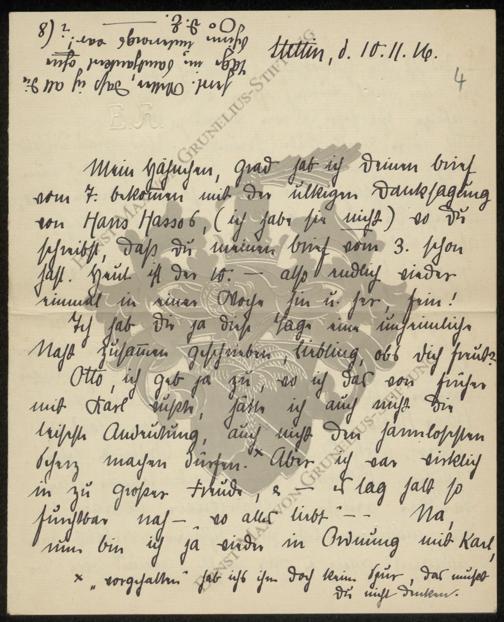 Stettin, d. 10.11.16.
4
E.R.
Mein Häschen, grad hab ich Deinen Brief
vom 7. bekommen mit der ulkigen Danksagung
von Hans Hasso's, (ich habe sie nicht) wo Du
schreibst, daß Du meinen Brief vom 3. schon
hast. Heut ist der 10. — also endlich wieder
einmal in einer Woche hin u. her fein!
Ich hab Dir ja diese Tage eine unheimliche
Naht zusammen geschrieben, Liebling, obs Dich freut?
Otto, ich geb ja zu, wo ich das von früher
mit Karl wußte, hätte ich auch nicht die
leiseste Andeutung, auch nicht den harmlosesten
Scherz machen dürfen.x Aber ich war wirklich
in zu großer Freude, & — es lag halt so
furchtbar nah —, wo alles liebt" — — Na,
nun bin ich ja wieder in Ordnung mit Karl,
x „vorgehalten" hab ichs ihm doch keine Spur, das mußt
Du nicht denken.
DIENSTMAX VON GRUNELIUS-STIFTUNG